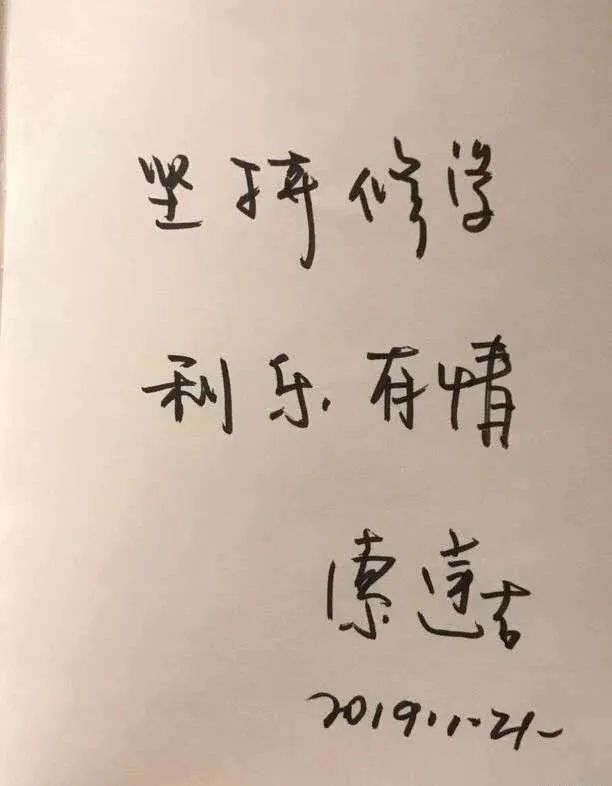 坚持修学
利乐有情
索达吉
2019.1.21